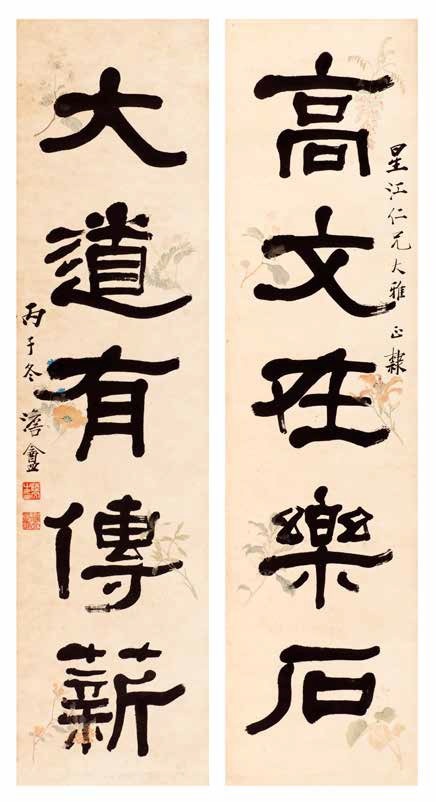 星江仁兄大雅正隸
高文在樂石
大道有傳薪
丙子冬 澹盦